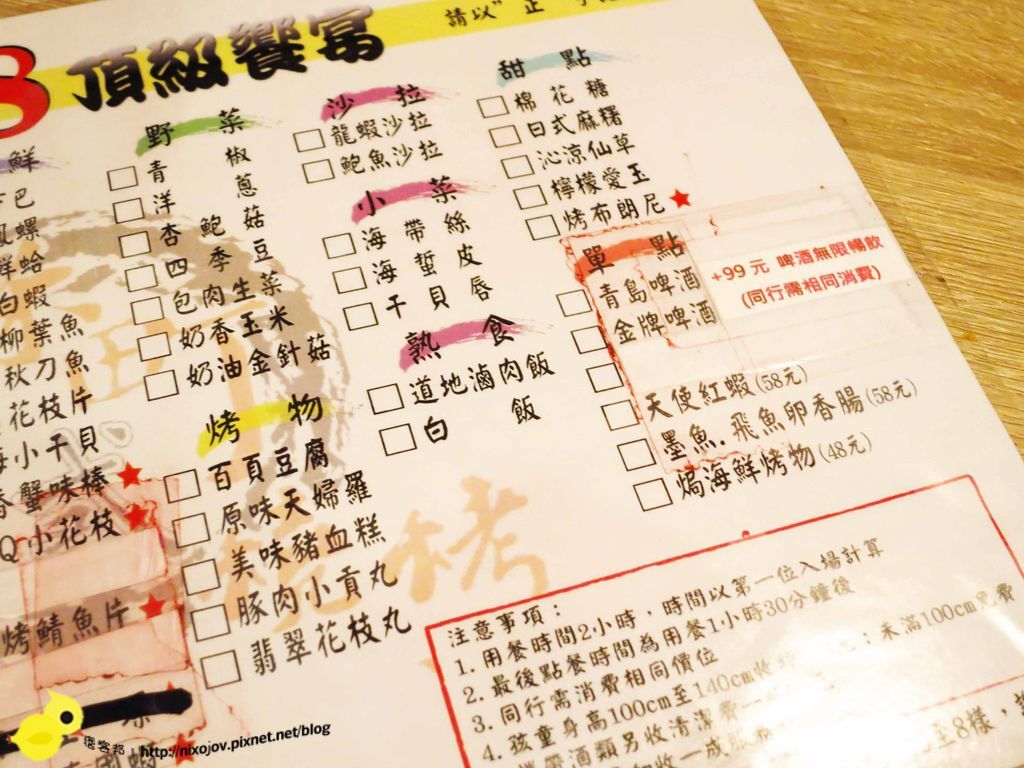 8 頂級饗宴
請以" 正
鮮
下巴
鳳螺
蛤
白蝦
柳葉魚
秋刀魚
花枝片
海小干貝
香蟹味棒★
Q小花枝★
烤鯖魚片★
野菜
青椒
洋蔥
杏鮑菇
四季豆
包肉生菜
奶香玉米
奶油金針菇
烤物
百頁豆腐
原味天婦羅
美味豬血糕
豚肉小貢丸
翡翠花枝丸
沙拉
龍蝦沙拉
鮑魚沙拉
小菜
海帶絲
海蜇皮
干貝唇
熟食
道地滷肉飯
白飯
甜點
棉花糖
日式麻糬
沁涼仙草
檸檬愛玉
烤布朗尼★
單點
青島啤酒
金牌啤酒
+99元 啤酒無限暢飲
(同行需相同消費)
天使紅蝦(58元)
墨魚.飛魚卵香腸(58元)
焗海鮮烤物(48元)
注意事項：
1. 用餐時間2小時，時間以第一位入場計算
2. 最後點餐時間為用餐1小時30分鐘後
3. 同行需消費相同價位
4. 孩童身高100cm至140cm收 ：未滿100cm免費
攜帶酒類另收清潔費一
收一成服 至8樣，
痞客邦：http://nixojov.pixnet.net/blog